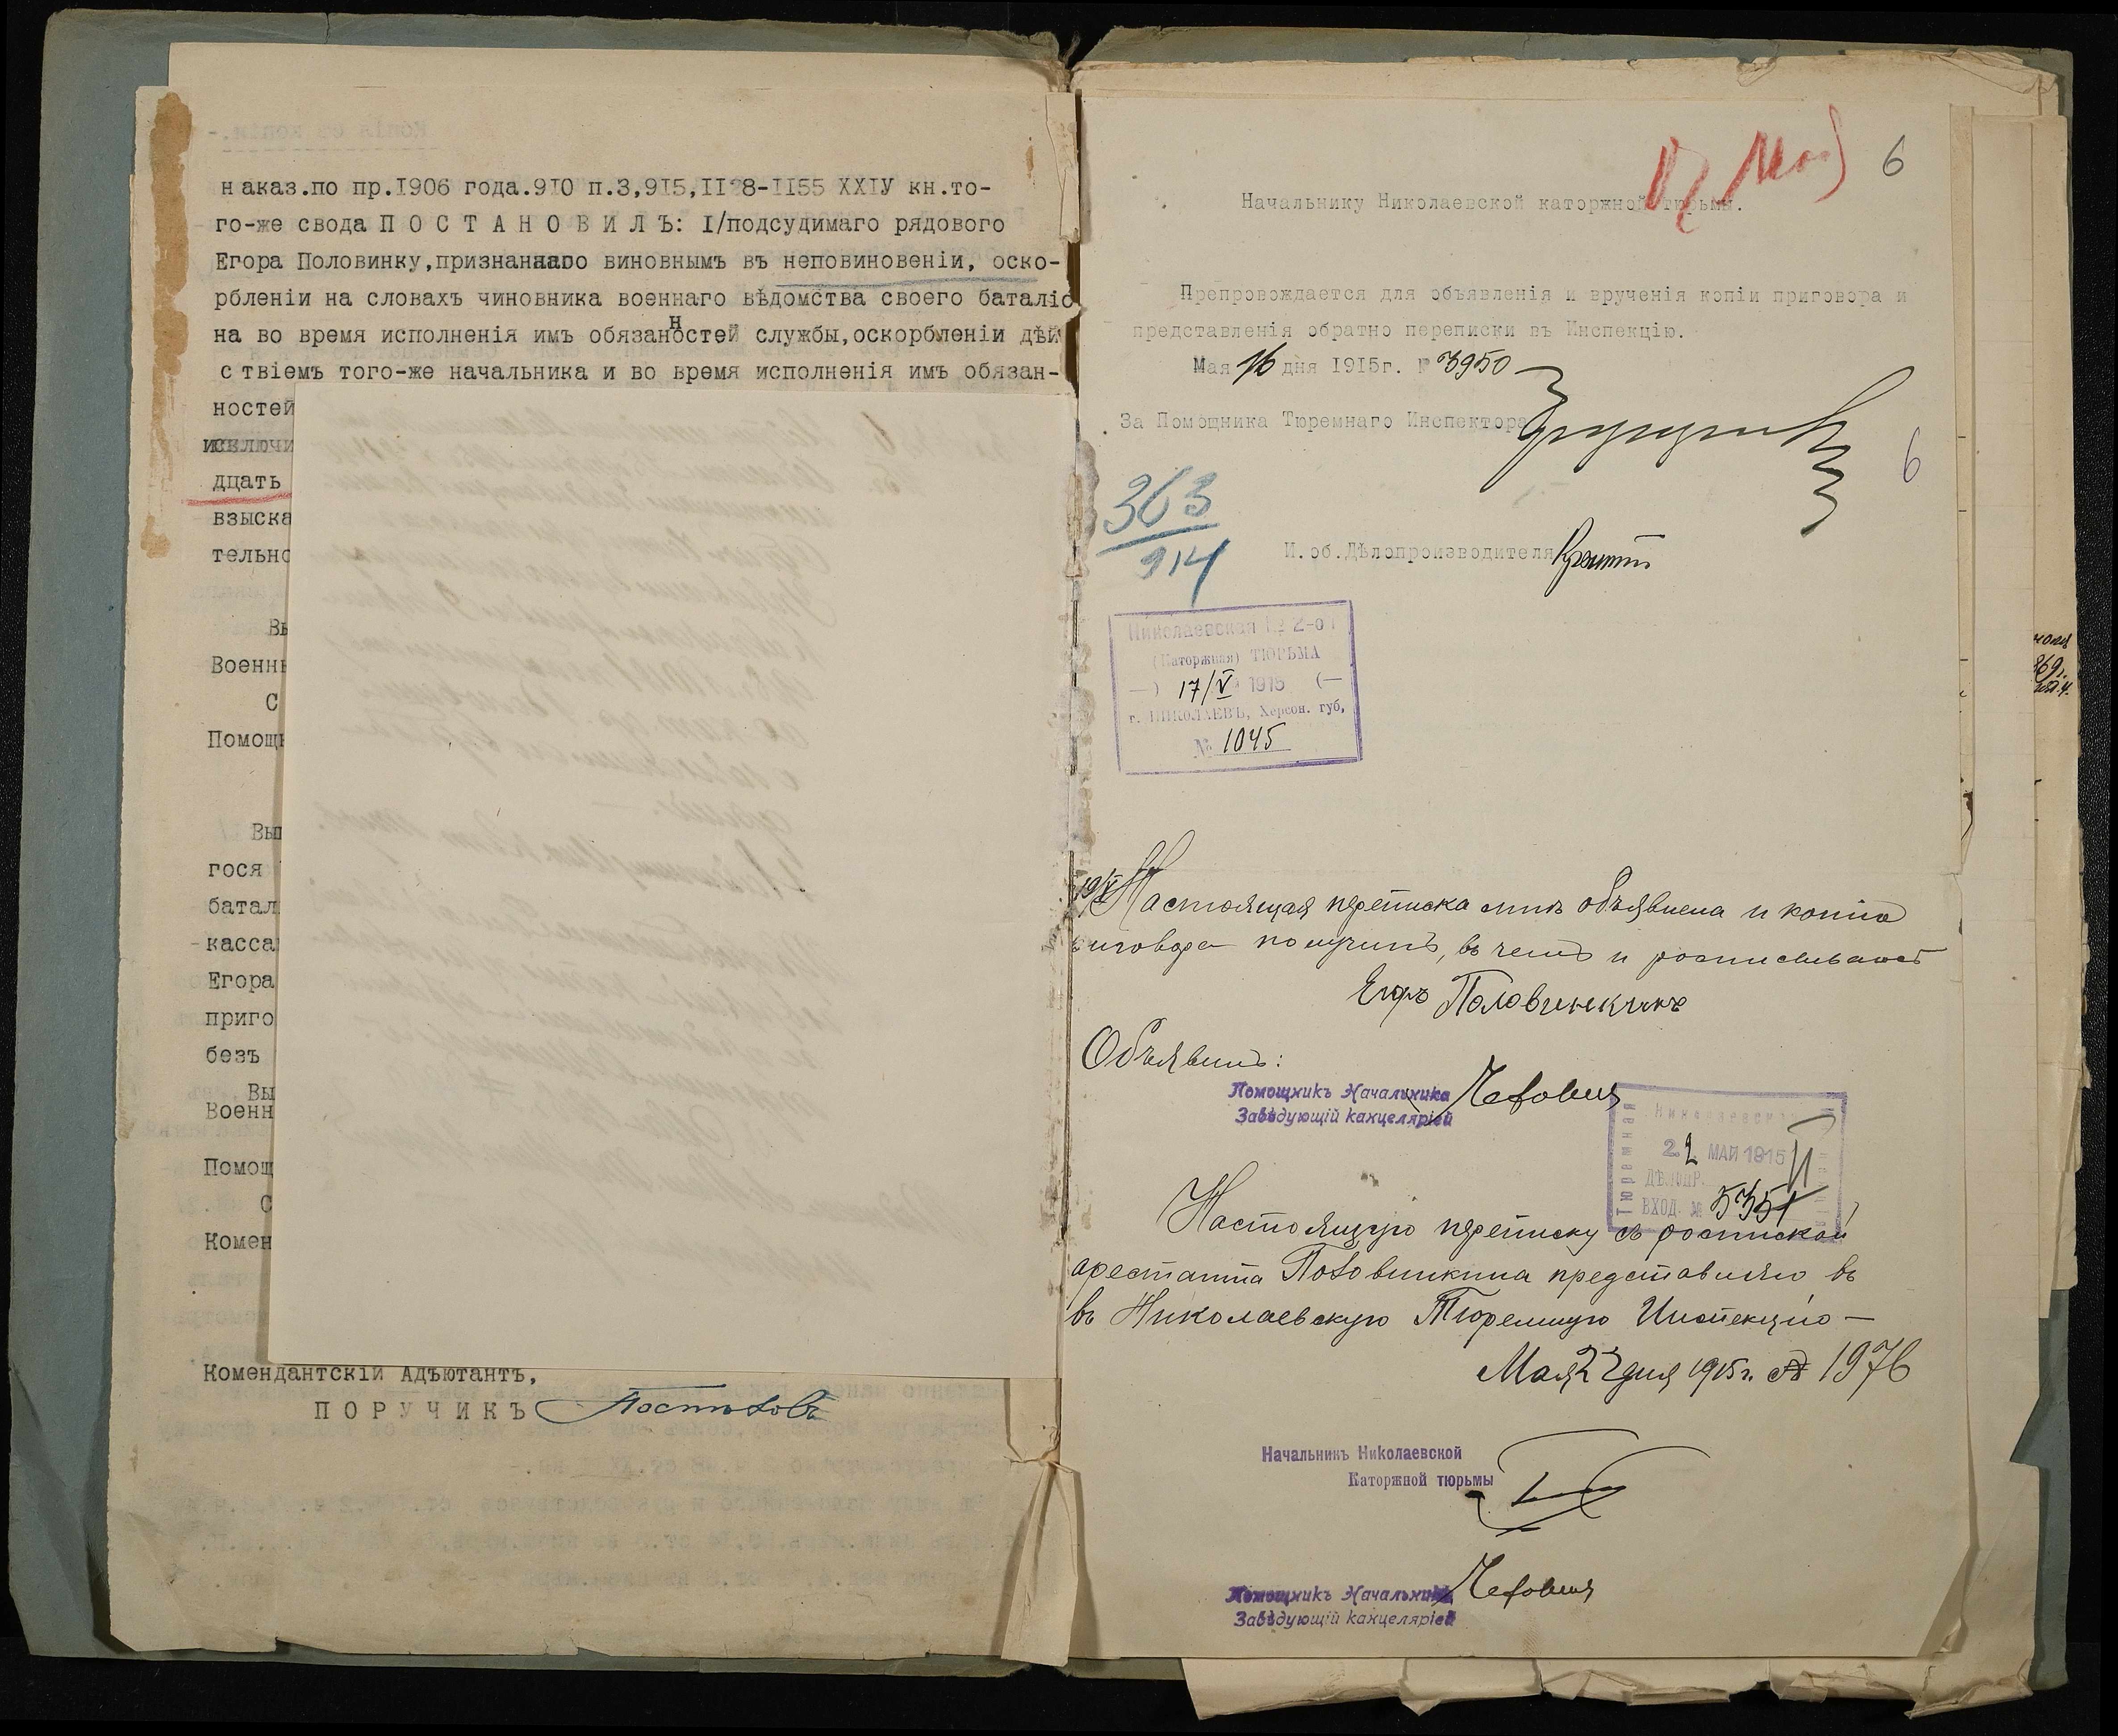 наказ.по пр.1906 года.910 п.3,915,1128-1155 XXIУ кн.то-
го-же свода П О С Т А Н О В И Л Ъ: I/подсудимаго рядового
Егора Половинку,признаннаго виновнымъ въ неповиновеніи, оско-
рбленіи на словахъ чиновника военнаго вѣдомства своего баталіо
на во время исполненія имъ обязанностей службы,оскорбленіи дѣй
ствіемъ того-же начальника и во время исполненія имъ обязан-
ностей
исключи
дцать
взыска
тельно
Вы
Военны
С
Помощн
Вып
гося
батал
касса
Егора
приго
безъ
Вы
Военн
Помощ
С
Комен
Комендантскій Адъютантъ,
П О Р У Ч И К Ъ
6
Начальнику Николаевской каторжной тюрьмы.
Препровождается для объявленія и врученія копіи приговора и
представленія обратно переписки въ Инспекцію.
Мая 16 дня 1915г. № 3950
За Помощника Тюремнаго Инспектора
6
363
914
И.об.Дѣлопроизводителя
Николаевская № 2-й
(Каторжная) ТЮРЬМА
17/V 1915
г. НИКОЛАЕВЪ, Херсон. губ.
№ 1045
19/V Настоящая переписка мнѣ объявлена и копію
приговора получилъ, въ чемъ и росписываюсь
Егоръ Половинкинъ
Объявилъ:
Помощникъ Начальника
Завѣдующій канцеляріей
Николаевская
Тюремная
22 МАЙ 1915
ДѢЛОПР.
ВХОД. № 5351
Настоящую переписку съ роспиской
арестанта Половинкина представляю въ
въ Николаевскую Тюремную Инспекцію —
Мая 22 дня 1915 г. № 1976
Начальникъ Николаевской
Каторжной тюрьмы
Помощникъ Начальника
Завѣдующій канцеляріей